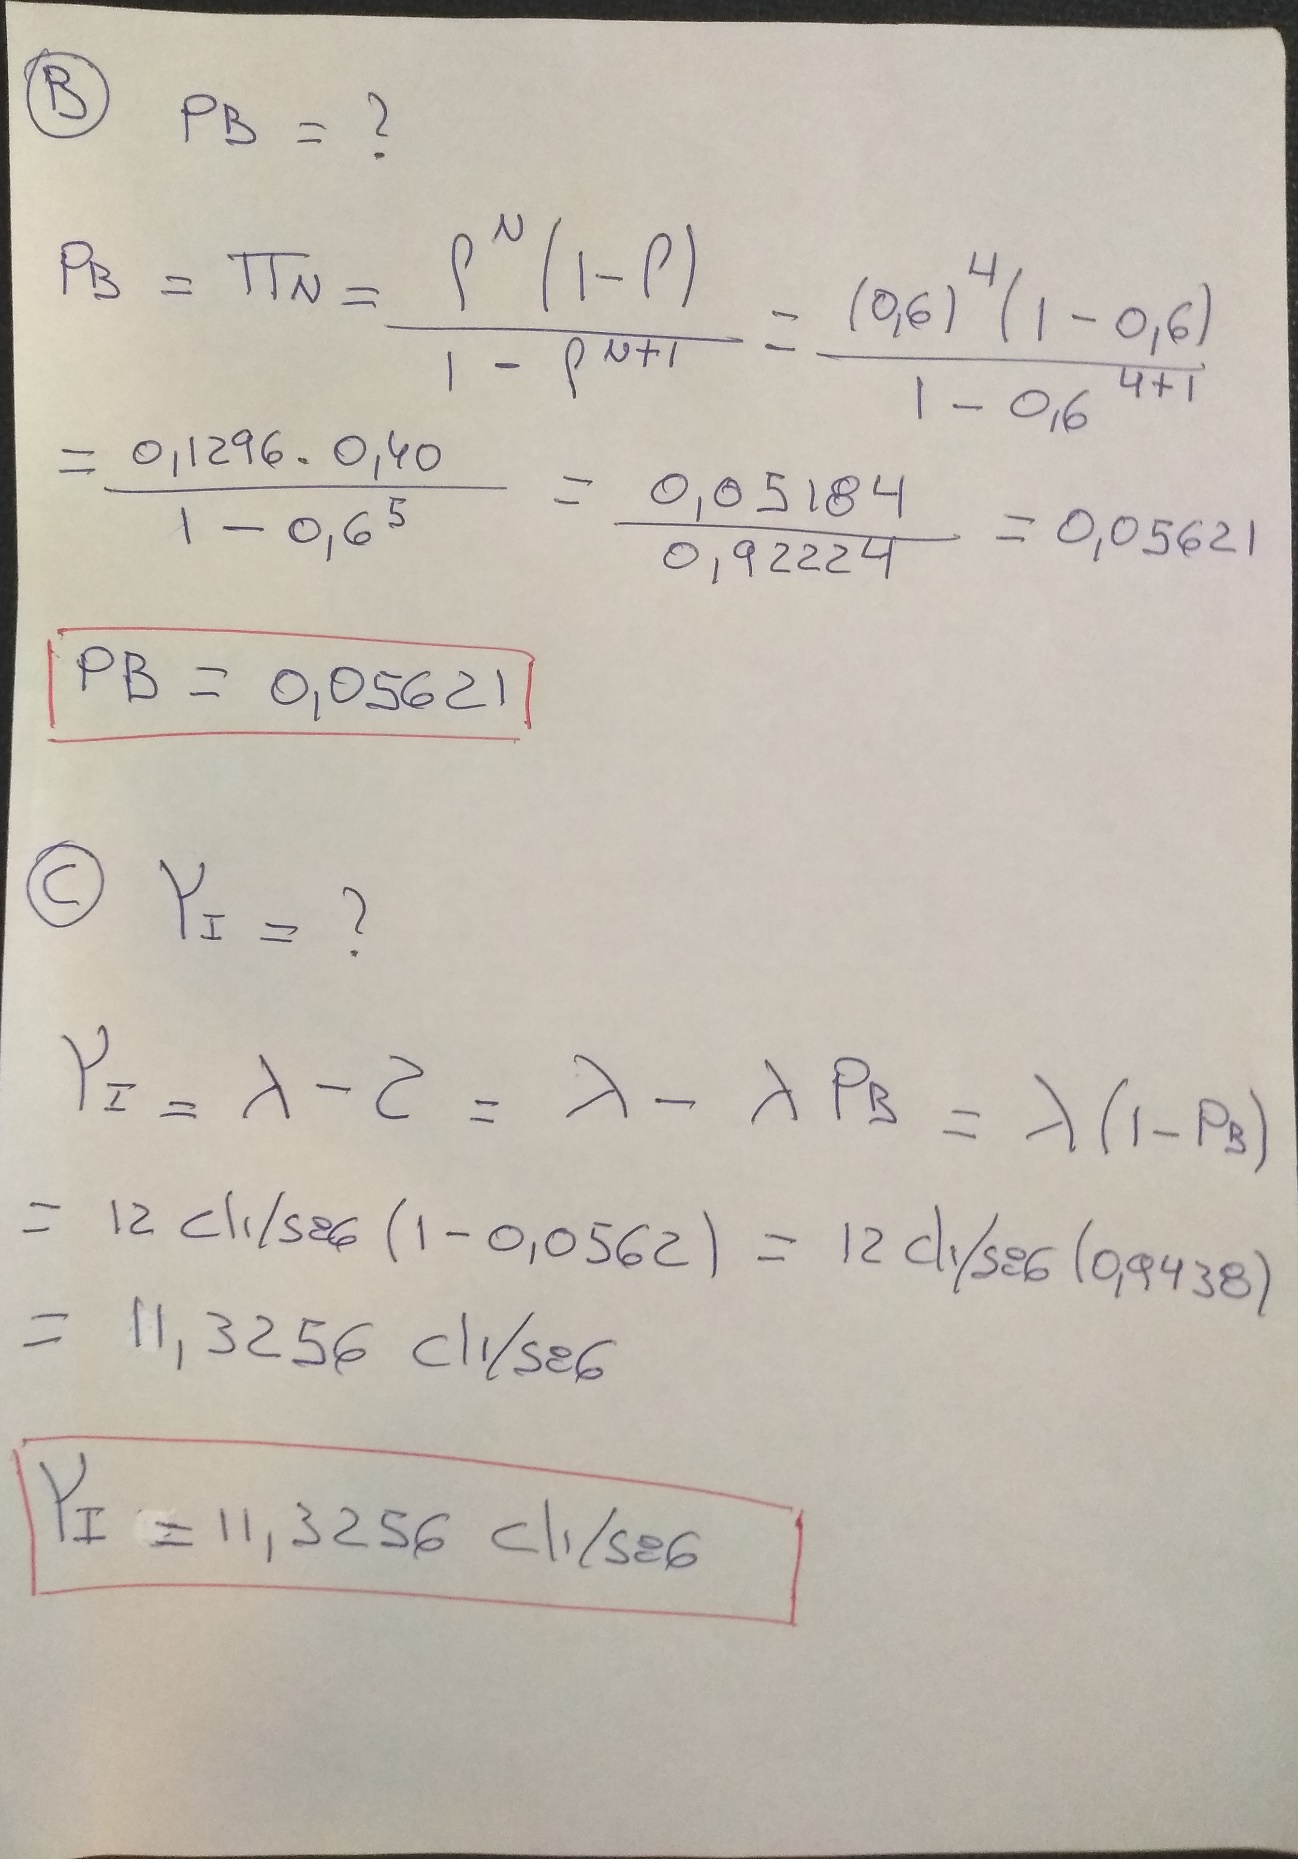 B PB = ?
PB = πN = ρ^N (1-ρ) / 1 - ρ^N+1 = (0,6)^4 (1 - 0,6) / 1 - 0,6^4+1
= 0,1296 . 0,40 / 1 - 0,6^5 = 0,05184 / 0,92224 = 0,05621
PB = 0,05621
C γI = ?
γI = λ - Z = λ - λ PB = λ (1 - PB)
= 12 cli/seg (1 - 0,0562) = 12 cli/seg (0,9438)
= 11,3256 cli/seg
γI = 11,3256 cli/seg